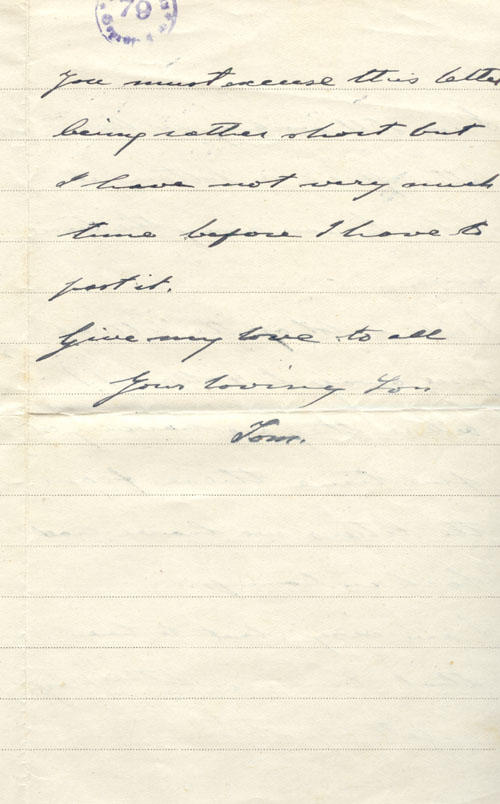 79
You must excuse this letter
being rather short but
I have not very much
time before I have to
post it.
Give my love to all
Your loving Son
Tom.